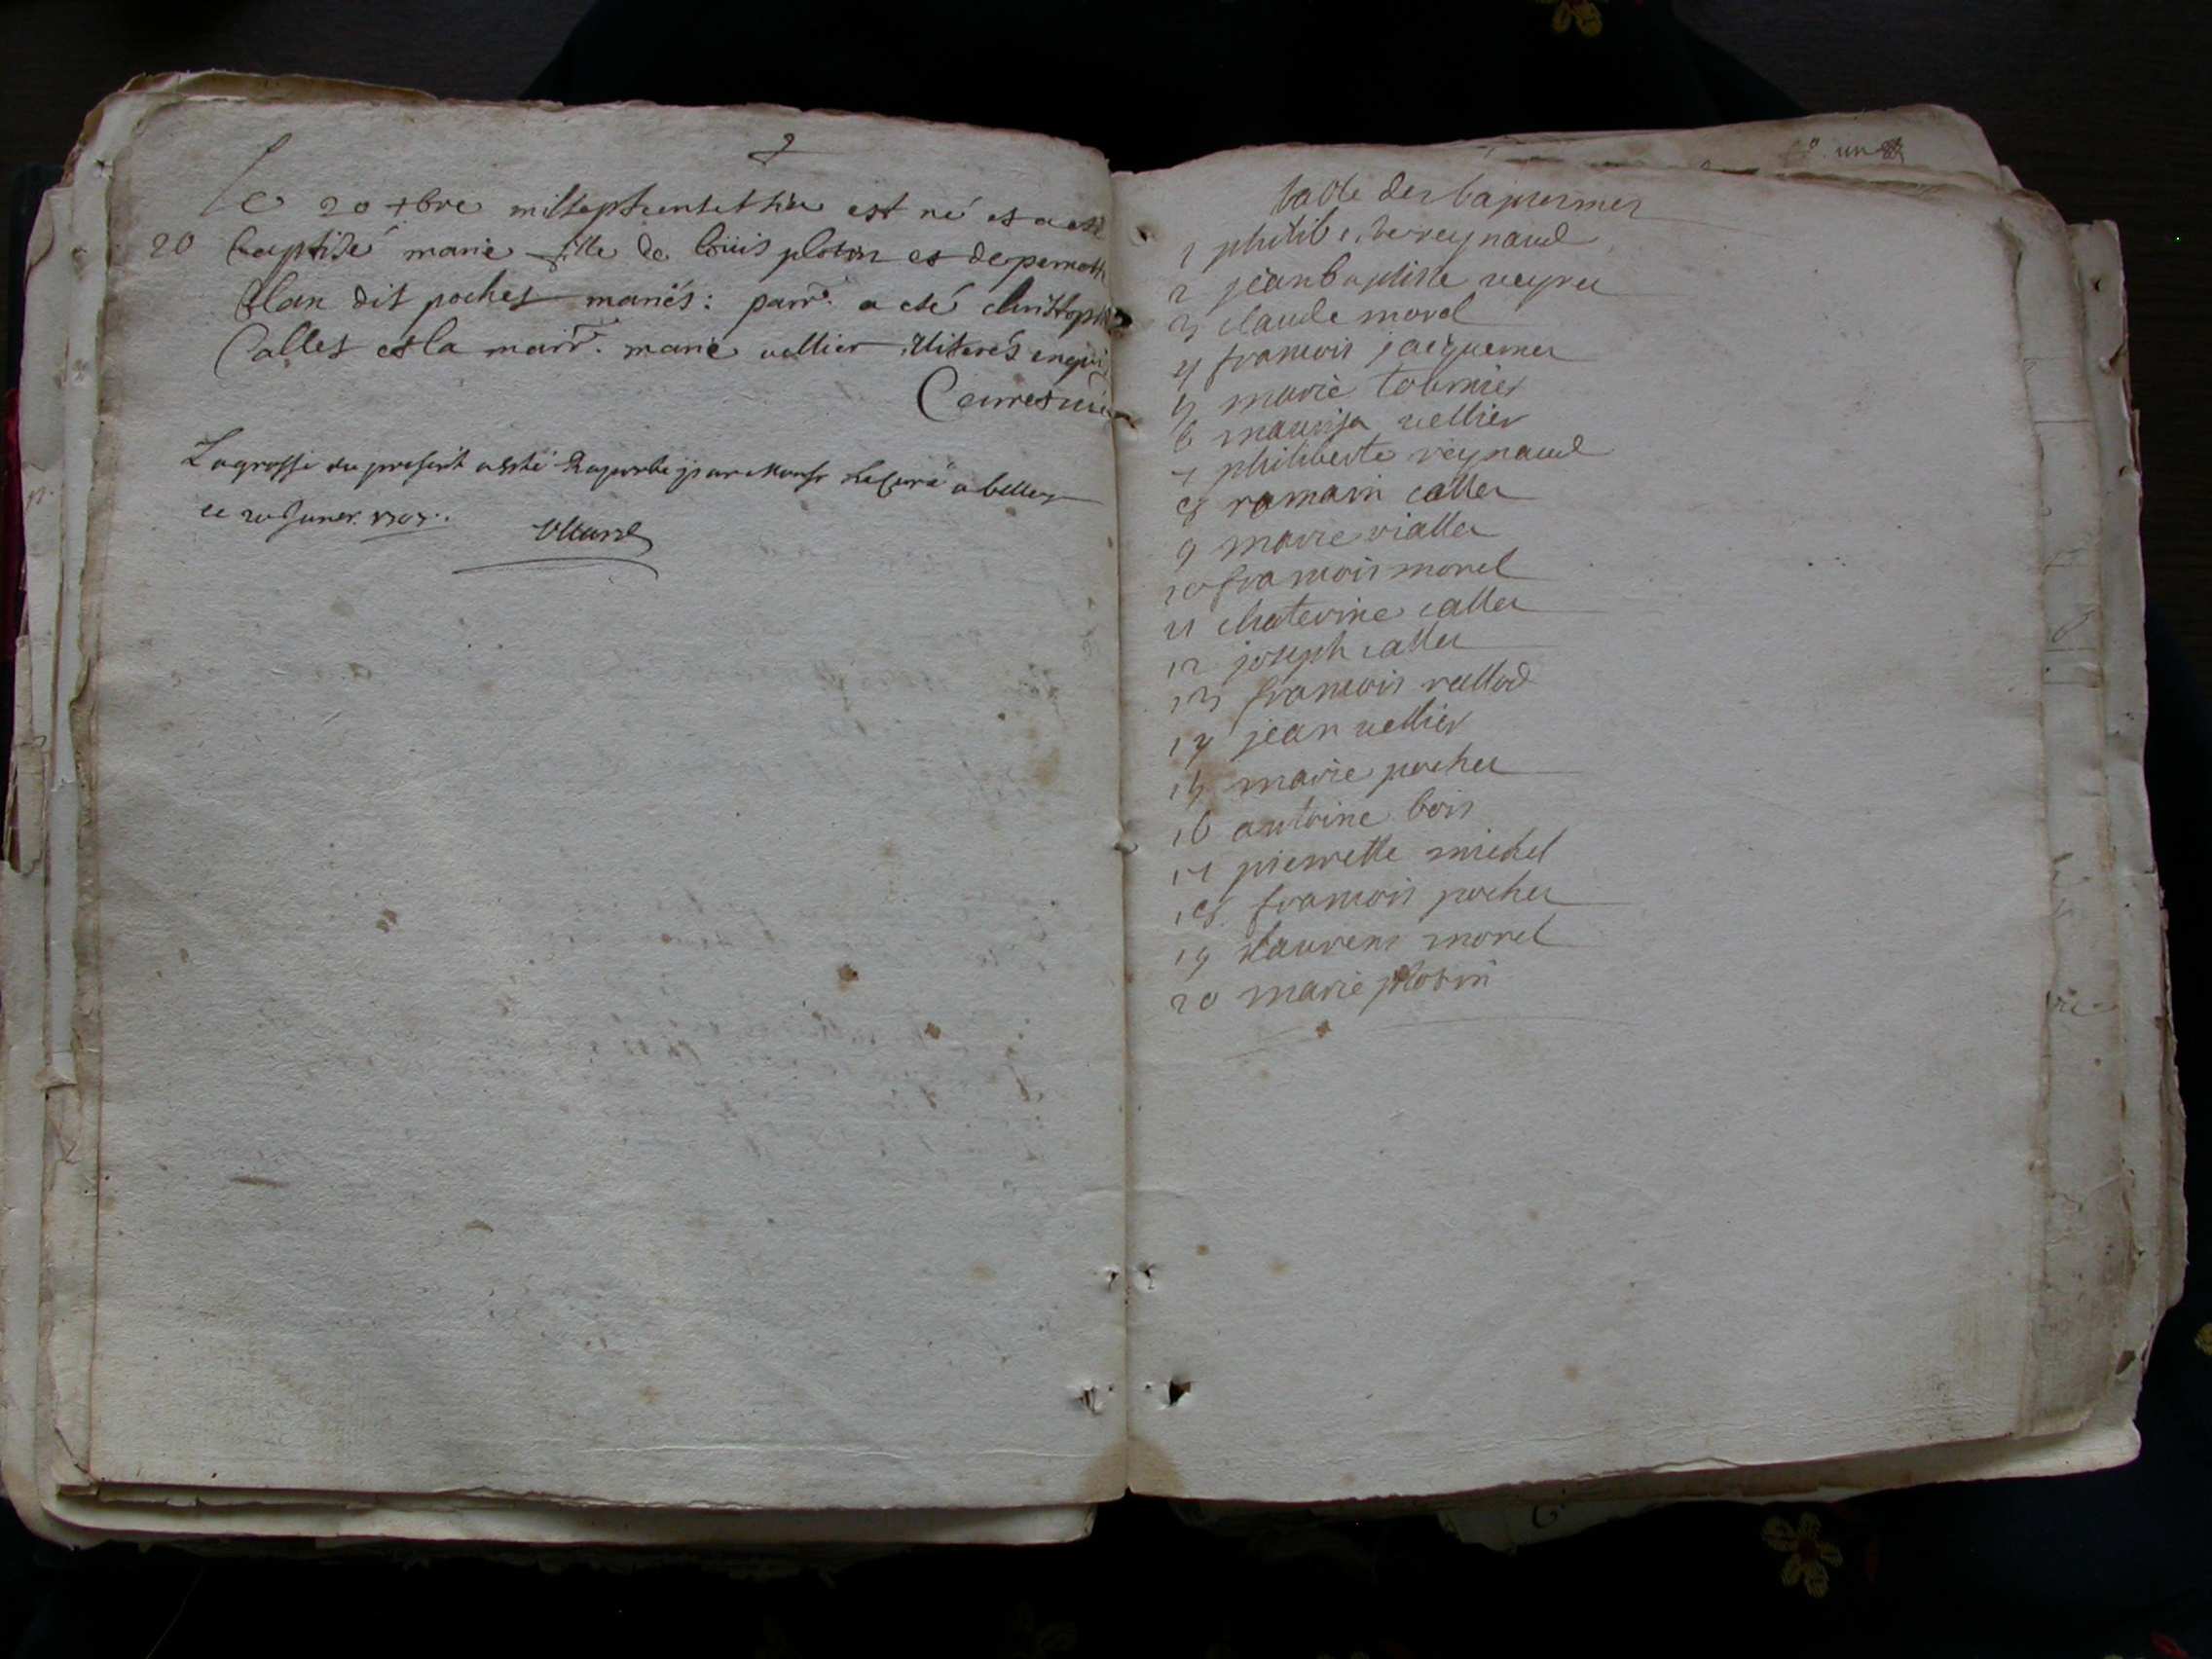 Le 20 xbre milleseptcent et six est né et a esté
20 baptisé marie fille de loüis plotin et de pernette
blan dit pochet mariés: parr. a eté christophe
Callet et la marr. marie vellier illiterés enquis
La grosse du present a esté Raportée par Monsr Le Curé a belley
ce 20 Janer. 1707.
table des baptesmes
1 philiberte reynaud
2 jean baptiste veyret
3 claude morel
4 francois jacquemet
5 marie tournier
6 vellier
7 philiberte reynaud
8 romain callet
9 marie viallet
10 francois morel
11 chaterine callet
12 joseph callet
13 francois
14 jean vellier
15 marie pochet
16 antoine bois
17 pierrette michel
18 francois pochet
19 laurens morel
20 marie plotin
un